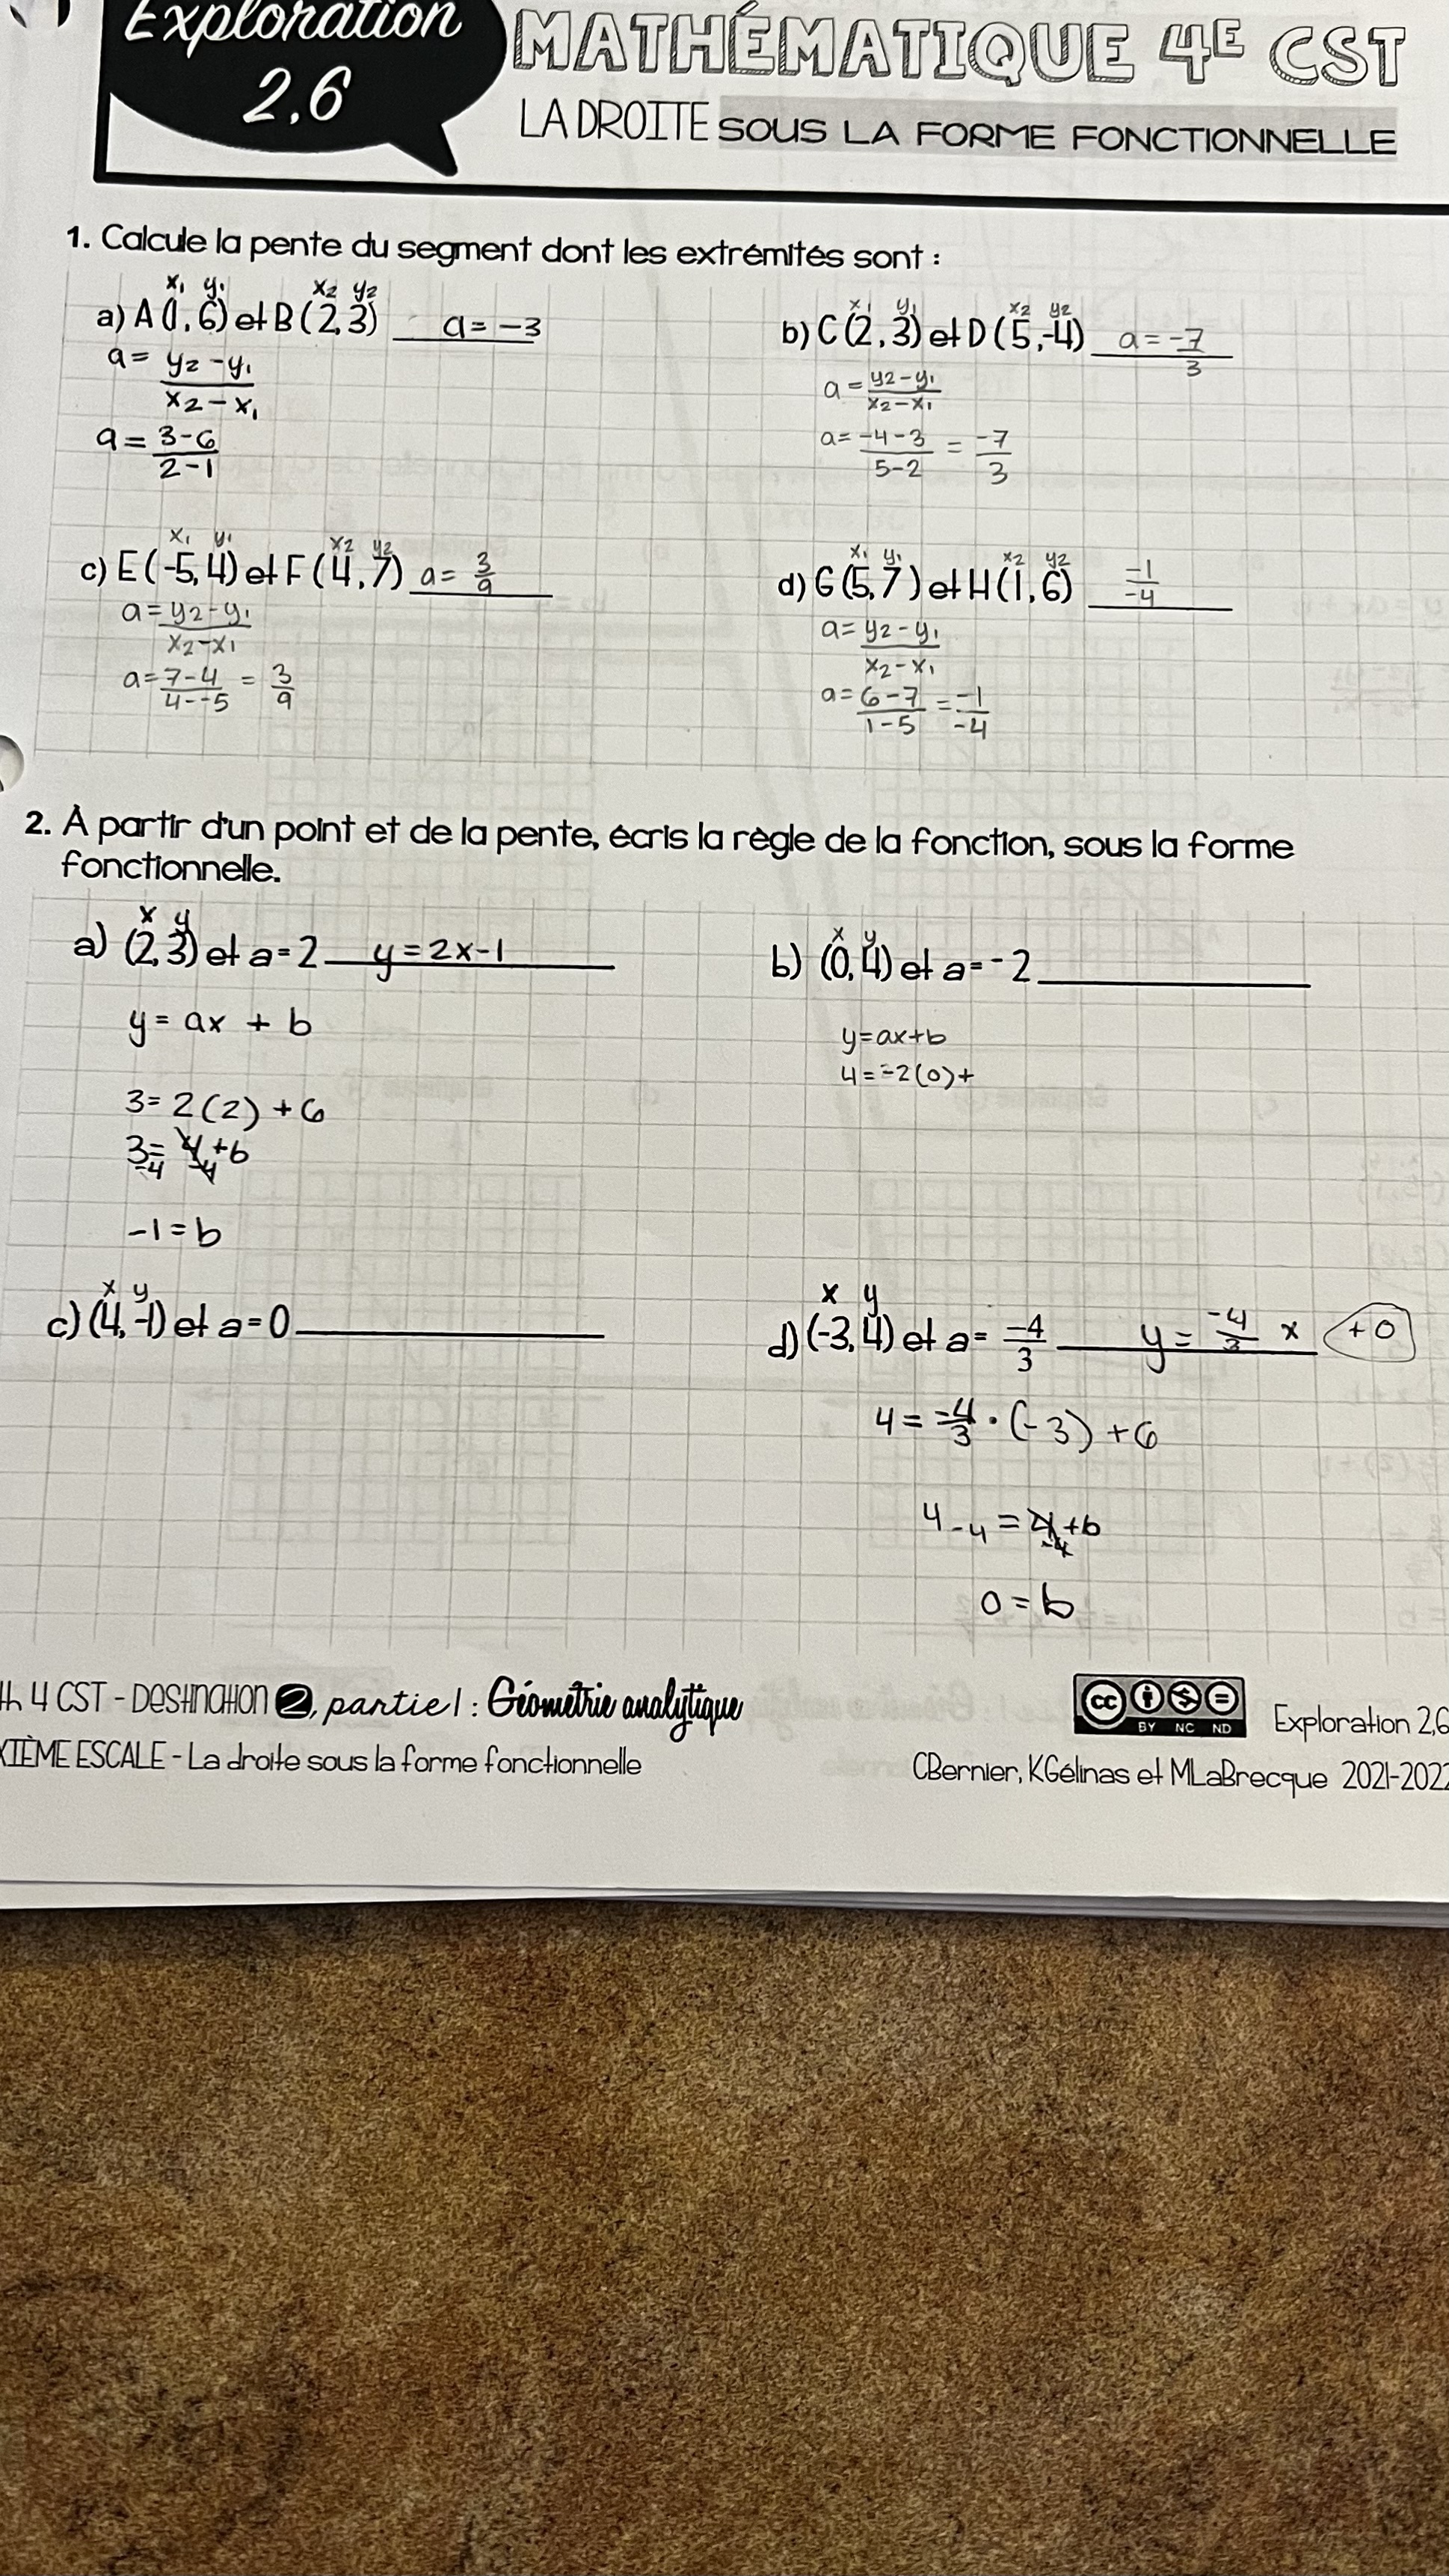 Exploration
2.6
MATHÉMATIQUE 4E CST
LA DROITE SOUS LA FORME FONCTIONNELLE
1. Calcule la pente du segment dont les extrémités sont :
x₁ y₁ x₂ y₂
a) A(1, 6) et B(2, 3) a = -3
a = y₂ - y₁ / x₂ - x₁
a = 3-6 / 2-1
x₁ y₁ x₂ y₂
b) C(2, 3) et D(5, -4) a = -7/3
a = y₂ - y₁ / x₂ - x₁
a = -4-3 / 5-2 = -7/3
x₁ y₁ x₂ y₂
c) E(-5, 4) et F(4, 7) a = 3/9
a = y₂ - y₁ / x₂ - x₁
a = 7-4 / 4--5 = 3/9
x₁ y₁ x₂ y₂
d) G(5, 7) et H(1, 6) -1/-4
a = y₂ - y₁ / x₂ - x₁
a = 6-7 / 1-5 = -1/-4
2. À partir d'un point et de la pente, écris la règle de la fonction, sous la forme
fonctionnelle.
x y
a) (2, 3) et a = 2 y = 2x-1
y = ax + b
3 = 2(2) + b
3 = 4 + b
-4 -4
-1 = b
x y
b) (0, 4) et a = -2
y = ax+b
4 = -2(0)+
x y
c) (4, -1) et a = 0
x y
d) (-3, 4) et a = -4/3 y = -4/3 x +0
4 = -4/3 · (-3) + b
4 -4 = 4 + b
-4
0 = b
th 4 CST - Destination 2, partie 1 : Géométrie analytique
XIÈME ESCALE - La droite sous la forme fonctionnelle
cc BY NC ND
Exploration 2,6
CBernier, KGélinas et MLaBrecque 2021-2022